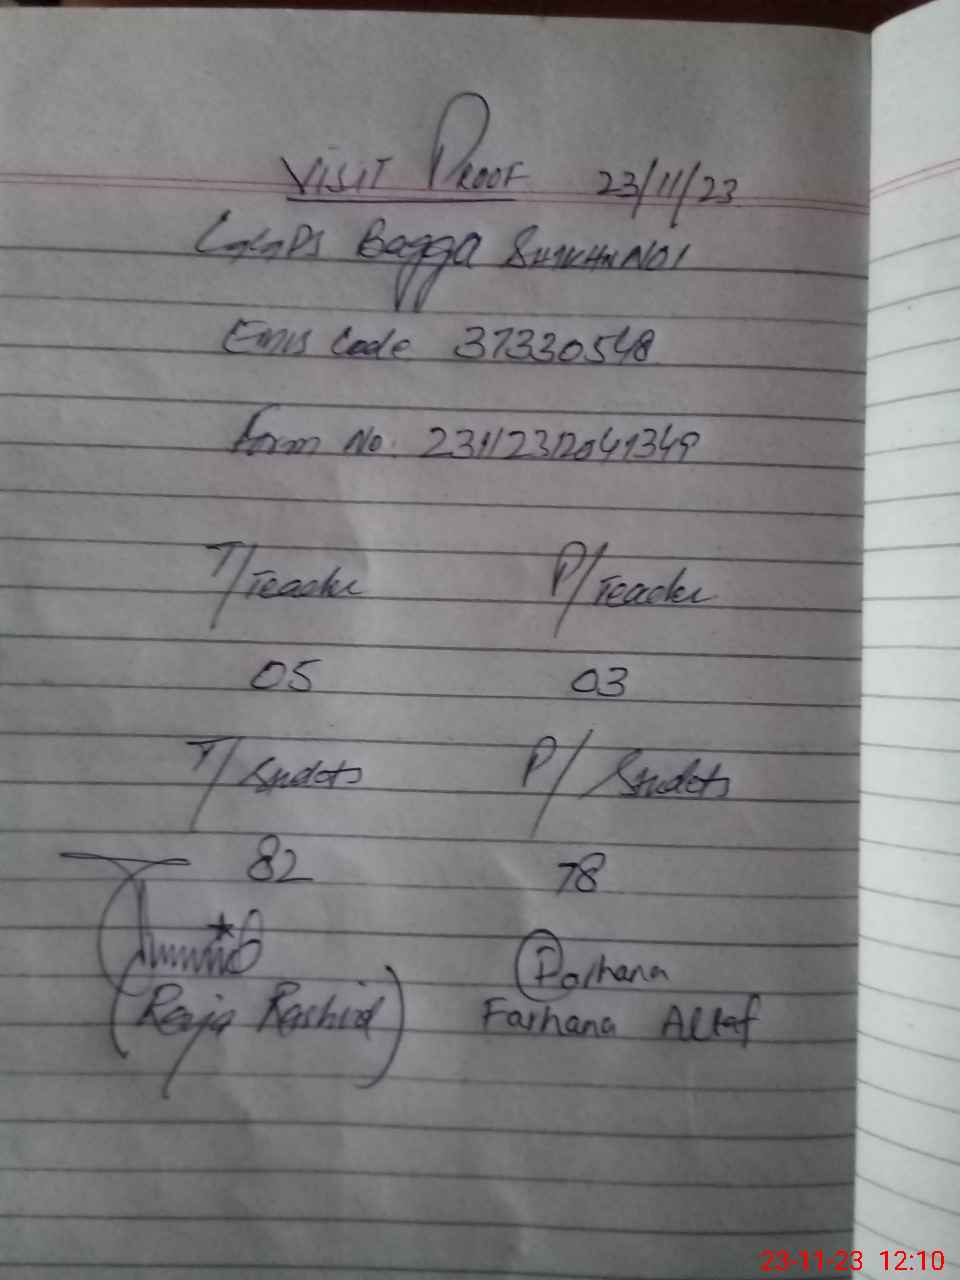 VISIT PROOF 23/11/23
GGPS Bagga
Emis Code 37330548
Form No. 23112312041349
T/Teacher P/Teacher
05 03
T/Studets P/Studets
82 78
Farhana
(Raja Rashid) Farhana Altaf
23-11-23 12:10